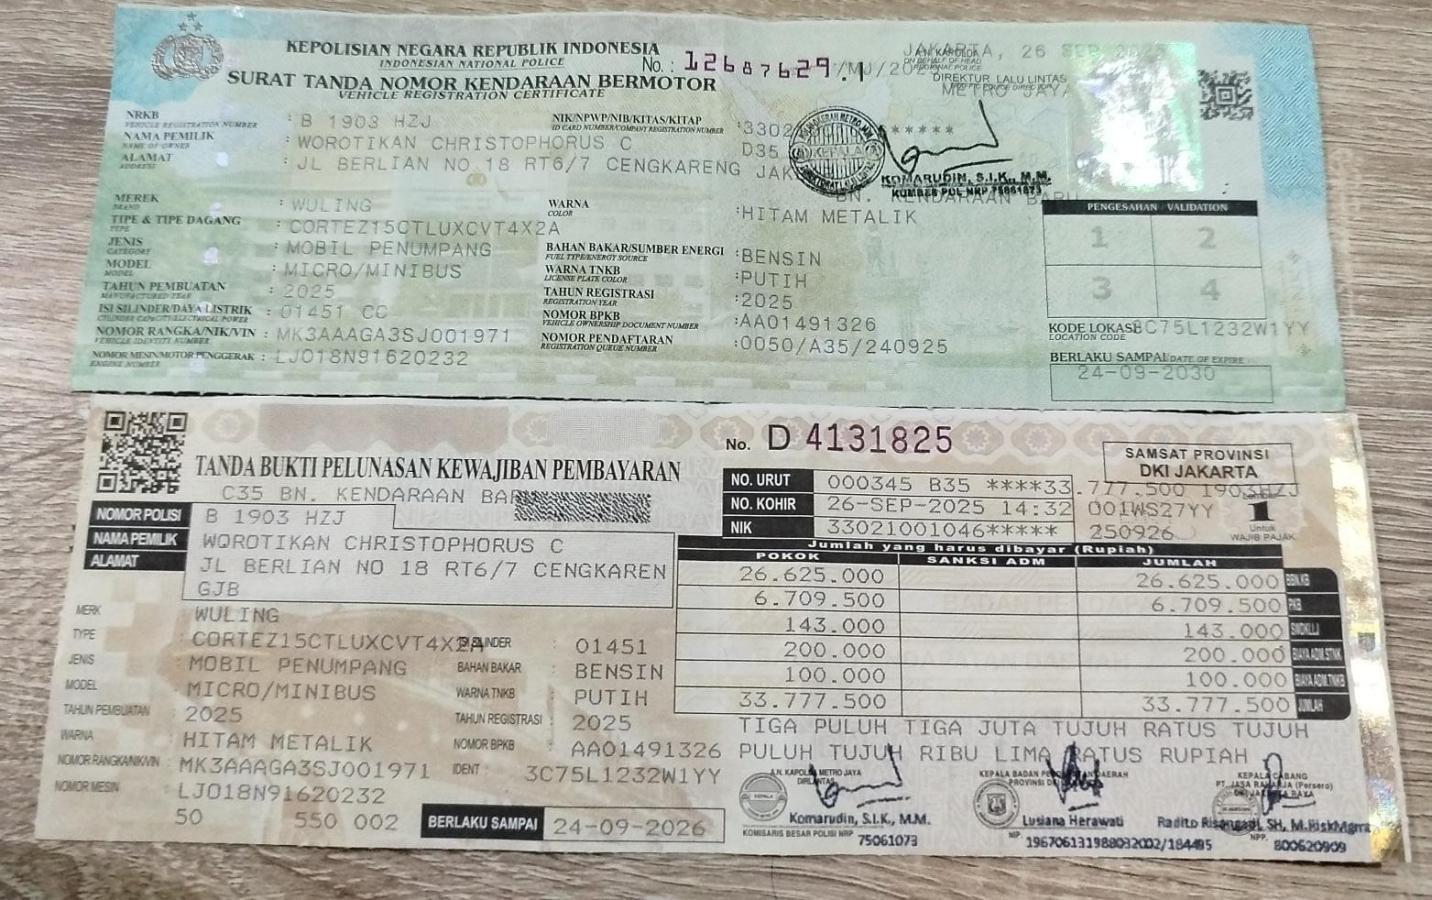 KEPOLISIAN NEGARA REPUBLIK INDONESIA
INDONESIAN NATIONAL POLICE
SURAT TANDA NOMOR KENDARAAN BERMOTOR
VEHICLE REGISTRATION CERTIFICATE
No. : 12687629.1 /MJ/202
JAKARTA, 26 SEP 2025
DIREKTUR LALU LINTAS
METRO JAYA
NRKB : B 1903 HZJ
VEHICLE REGISTRATION NUMBER
NIK/NPWP/NIB/KITAS/KITAP :3302 *****
ID CARD NUMBER/COMPANY REGISTRATION NUMBER
NAMA PEMILIK : WOROTIKAN CHRISTOPHORUS C D35
NAME OF OWNER
ALAMAT : JL BERLIAN NO 18 RT6/7 CENGKARENG JAK
ADDRESS
BN. KENDARAAN BARU
KEPALA
KOMARUDIN, S.I.K., M.M.
KOMBES POL NRP 75061073
MEREK : WULING
BRAND
WARNA :HITAM METALIK
COLOR
TIPE & TIPE DAGANG : CORTEZ15CTLUXCVT4X2A
TYPE
JENIS : MOBIL PENUMPANG
CATEGORY
BAHAN BAKAR/SUMBER ENERGI :BENSIN
FUEL TYPE/ENERGY SOURCE
MODEL : MICRO/MINIBUS
MODEL
WARNA TNKB :PUTIH
LICENSE PLATE COLOR
TAHUN PEMBUATAN : 2025
MANUFACTURED YEAR
TAHUN REGISTRASI :2025
REGISTRATION YEAR
ISI SILINDER/DAYA LISTRIK : 01451 CC
CYLINDER CAPACITY/ELECTRICAL POWER
NOMOR BPKB :AA01491326
VEHICLE OWNERSHIP DOCUMENT NUMBER
NOMOR RANGKA/NIK/VIN : MK3AAAGA3SJ001971
VEHICLE IDENTITY NUMBER
NOMOR PENDAFTARAN :0050/A35/240925
REGISTRATION QUEUE NUMBER
NOMOR MESIN/MOTOR PENGGERAK : LJO18N91620232
ENGINE NUMBER
PENGESAHAN VALIDATION
1 2
3 4
KODE LOKASI 3C75L1232W1YY
LOCATION CODE
BERLAKU SAMPAI DATE OF EXPIRE
24-09-2030
No. D 4131825
TANDA BUKTI PELUNASAN KEWAJIBAN PEMBAYARAN
SAMSAT PROVINSI
DKI JAKARTA
C35 BN. KENDARAAN BARU
NO. URUT 000345 B35 ****33.777.500 1903HZJ
NO. KOHIR 26-SEP-2025 14:32 001WS27YY
NIK 33021001046***** 250926
Lembar
1
Untuk
WAJIB PAJAK
NOMOR POLISI B 1903 HZJ
NAMA PEMILIK WOROTIKAN CHRISTOPHORUS C
ALAMAT JL BERLIAN NO 18 RT6/7 CENGKAREN
GJB
Jumlah yang harus dibayar (Rupiah)
POKOK SANKSI ADM JUMLAH
26.625.000 26.625.000 BBN.KB
6.709.500 6.709.500 PKB
143.000 143.000 SWDKLLJ
200.000 200.000 BIAYA ADM.STNK
100.000 100.000 BIAYA ADM.TNKB
33.777.500 33.777.500 JUMLAH
TIGA PULUH TIGA JUTA TUJUH RATUS TUJUH
PULUH TUJUH RIBU LIMA RATUS RUPIAH
MERK : WULING
TYPE : CORTEZ15CTLUXCVT4X2A
SILINDER : 01451
JENIS : MOBIL PENUMPANG
BAHAN BAKAR : BENSIN
MODEL : MICRO/MINIBUS
WARNA TNKB : PUTIH
TAHUN PEMBUATAN : 2025
TAHUN REGISTRASI : 2025
WARNA : HITAM METALIK
NOMOR BPKB : AA01491326
NOMOR RANGKA/NIK/VIN : MK3AAAGA3SJ001971
IDENT : 3C75L1232W1YY
NOMOR MESIN : LJO18N91620232
50 550 002
BERLAKU SAMPAI 24-09-2026
A.N. KAPOLDA METRO JAYA
DIRLANTAS
Komarudin, S.I.K., M.M.
KOMISARIS BESAR POLISI NRP 75061073
KEPALA BADAN DAERAH
PROVINSI DKI
Lusiana Herawati
NIP. 196706131988032002/184495
KEPALA CABANG
PT. JASA RAHARJA (Persero)
DKI JAKARTA RAYA
Radito Risangadi, SH, M.RiskMgmt
NPP. 800620909